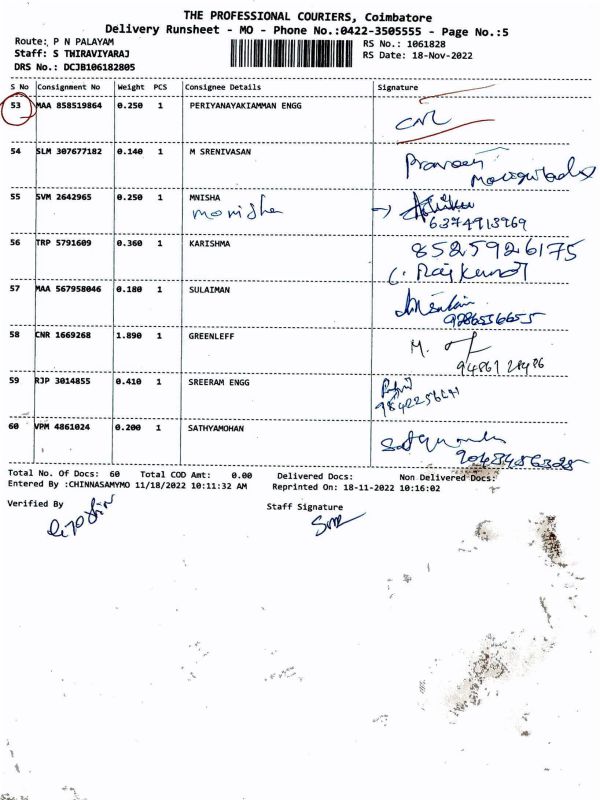 THE PROFESSIONAL COURIERS, Coimbatore
Delivery Runsheet - MO - Phone No.:0422-3505555 - Page No.:5
Route: P N PALAYAM RS No.: 1061828
Staff: S THIRAVIYARAJ RS Date: 18-Nov-2022
DRS No.: DCJB106182805
S No Consignment No Weight PCS Consignee Details Signature
53 MAA 858519864 0.250 1 PERIYANAYAKIAMMAN ENGG
54 SLM 307677182 0.140 1 M SRENIVASAN
Praveen
55 SVM 2642965 0.250 1 MNISHA
monisha
6374913969
56 TRP 5791609 0.360 1 KARISHMA 8525926175
C. Rajkumar
57 MAA 567958046 0.180 1 SULAIMAN
9286536655
58 CNR 1669268 1.890 1 GREENLEFF M.
59 RJP 3014855 0.410 1 SREERAM ENGG
60 VPM 4861024 0.200 1 SATHYAMOHAN
Total No. Of Docs: 60 Total COD Amt: 0.00 Delivered Docs: Non Delivered Docs:
Entered By :CHINNASAMYMO 11/18/2022 10:11:32 AM Reprinted On: 18-11-2022 10:16:02
Verified By Staff Signature